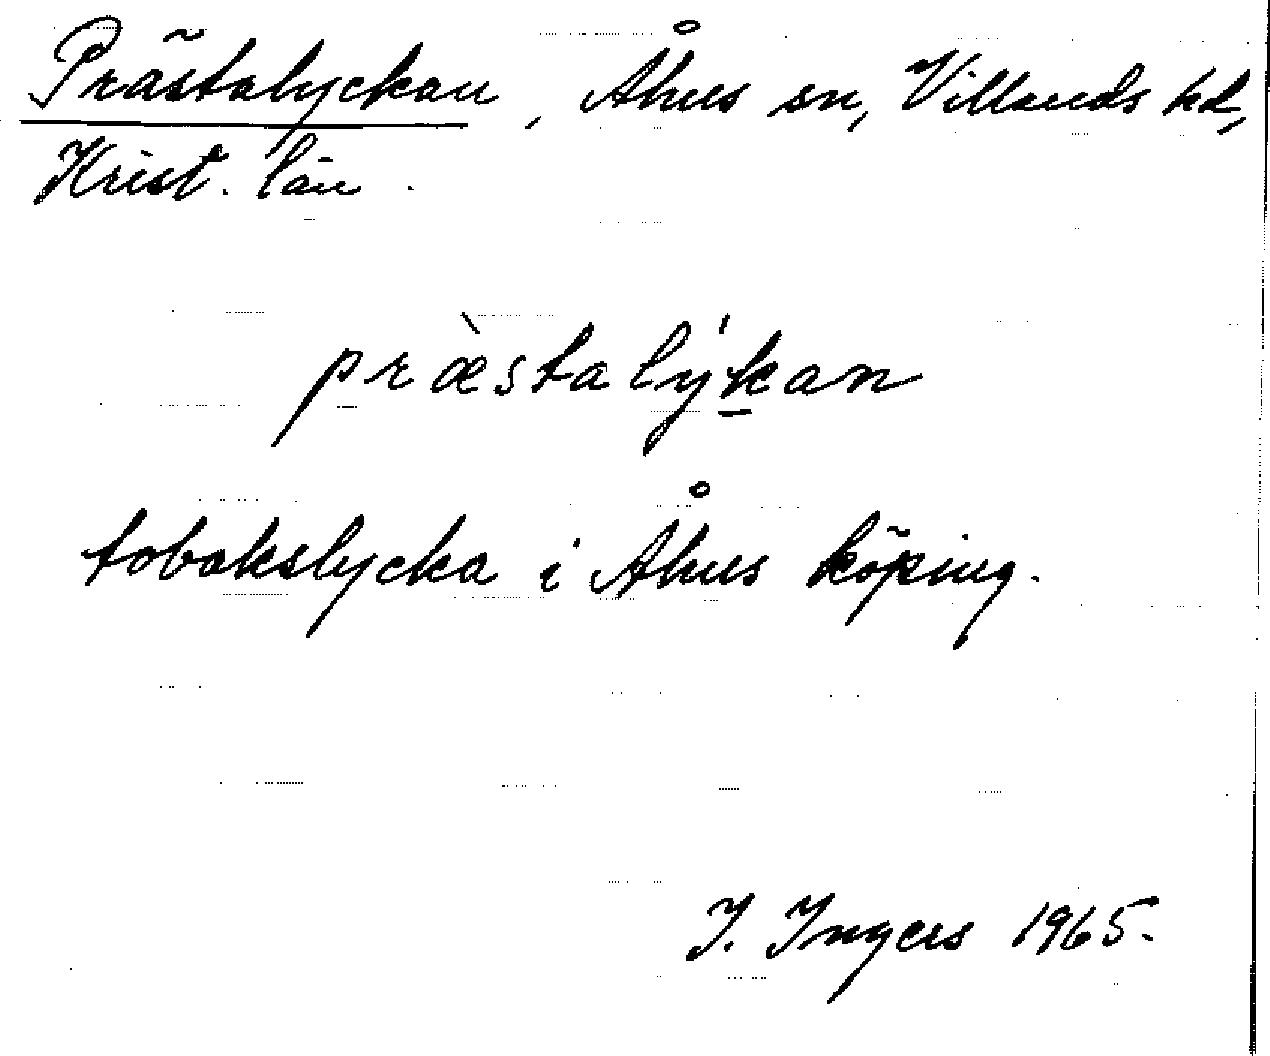 Prästalyckan, Åhus sn, Villands hd,
Krist. län.
præ̀stalýk̲an
tobakslycka i Åhus köping.
I. Ingers 1965.